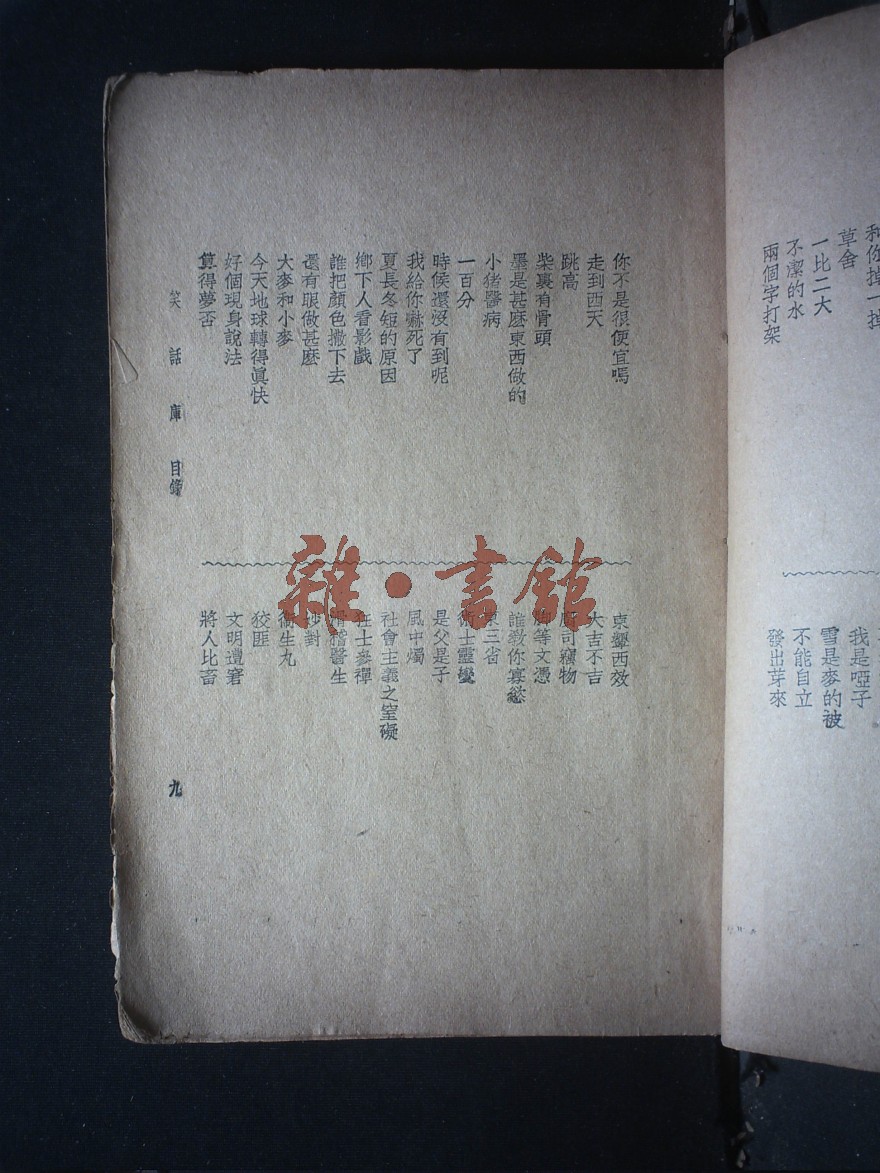 和你掉一掉
草舍
一比二大
不潔的水
兩個字打架
我是啞子
雪是麥的被
不能自立
發出芽來
你不是很便宜嗎
走到西天
跳高
柴裏有骨頭
墨是甚麽東西做的
小猪醫病
一百分
時候還没有到呢
我給你嚇死了
夏長冬短的原因
鄉下人看影戲
誰把顏色撒下去
還有眼做甚麽
大麥和小麥
今天地球轉得眞快
好個現身說法
算得夢否
東顰西效
大吉不吉
厨司竊物
等文憑
誰敎你寡慾
東三省
術士靈變
是父是子
風中燭
社會主義之窒礙
狂士參禪
滑稽醫生
妙對
衞生丸
狡匪
文明遭窘
將人比畜
笑話庫 目錄
九
雜·書館